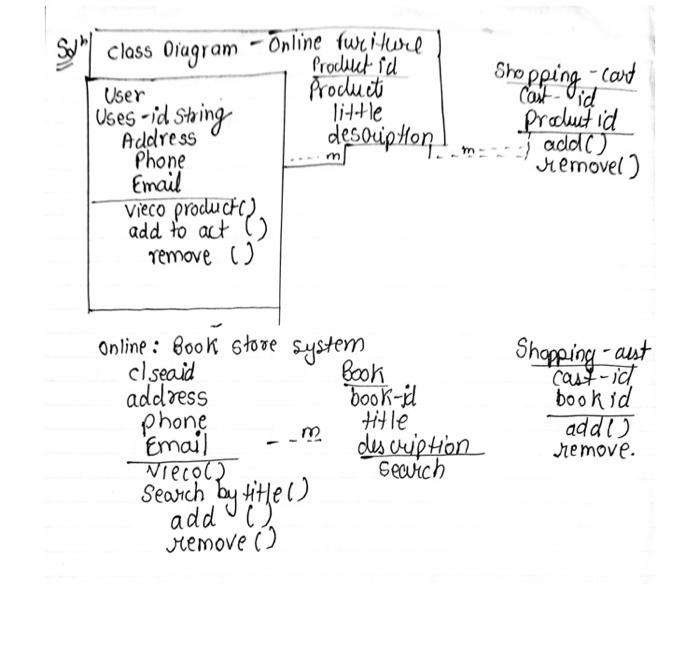 Solⁿ class Diagram - Online furiture
Product id
Product
little
description
User
Uses-id string
Address
Phone
Email
vieco product()
add to act ()
remove ()
m
m
Shopping-cart
Cart-id
Product id
add()
remove()
Online: Book store system
clseaid
address
phone
Email
vieco()
Search by title()
add ()
remove()
m
Book
book-id
title
description
Search
Shopping-aust
cast-id
book id
add()
remove.